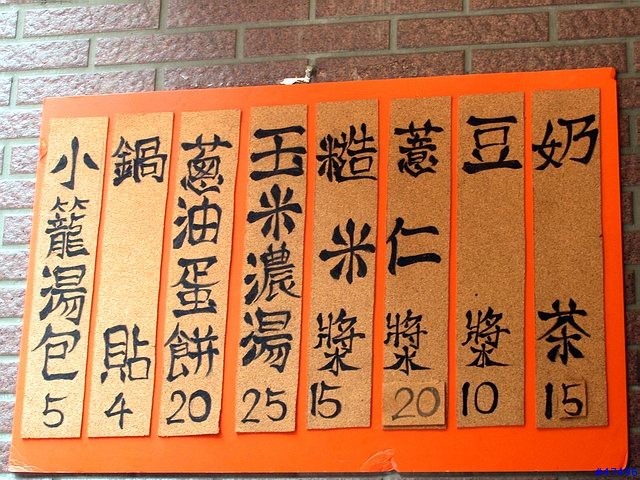 奶茶15
豆漿10
薏仁漿20
糙米漿15
玉米濃湯25
蔥油蛋餅20
鍋貼4
小籠湯包5